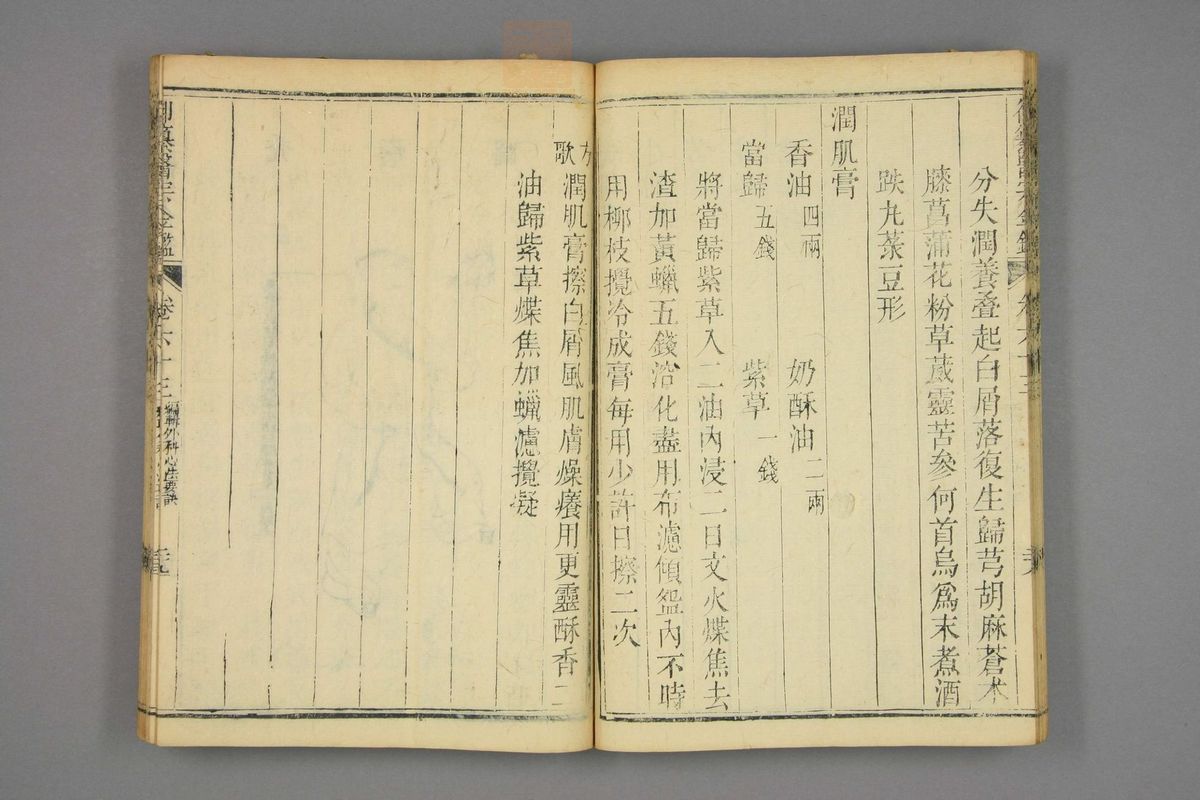 分失潤養叠起白屑落復生歸芎胡麻蒼朮
藤菖蒲花粉草蕆靈苦參何首烏為末煮酒
跌丸菉豆形
潤肌膏
香油四兩 奶酥油二兩
當歸五錢 紫草一錢
將當歸紫草入二油內浸二日文火煠焦去
渣加黃蠟五錢溶化盡用布濾傾盌內不時
用柳枝攪冷成膏每用少許日擦二次
方歌
潤肌膏擦白屑風肌膚燥癢用更靈酥香二
油歸紫草煠焦加蠟濾攪凝
卷六十三 編輯外科心法要訣